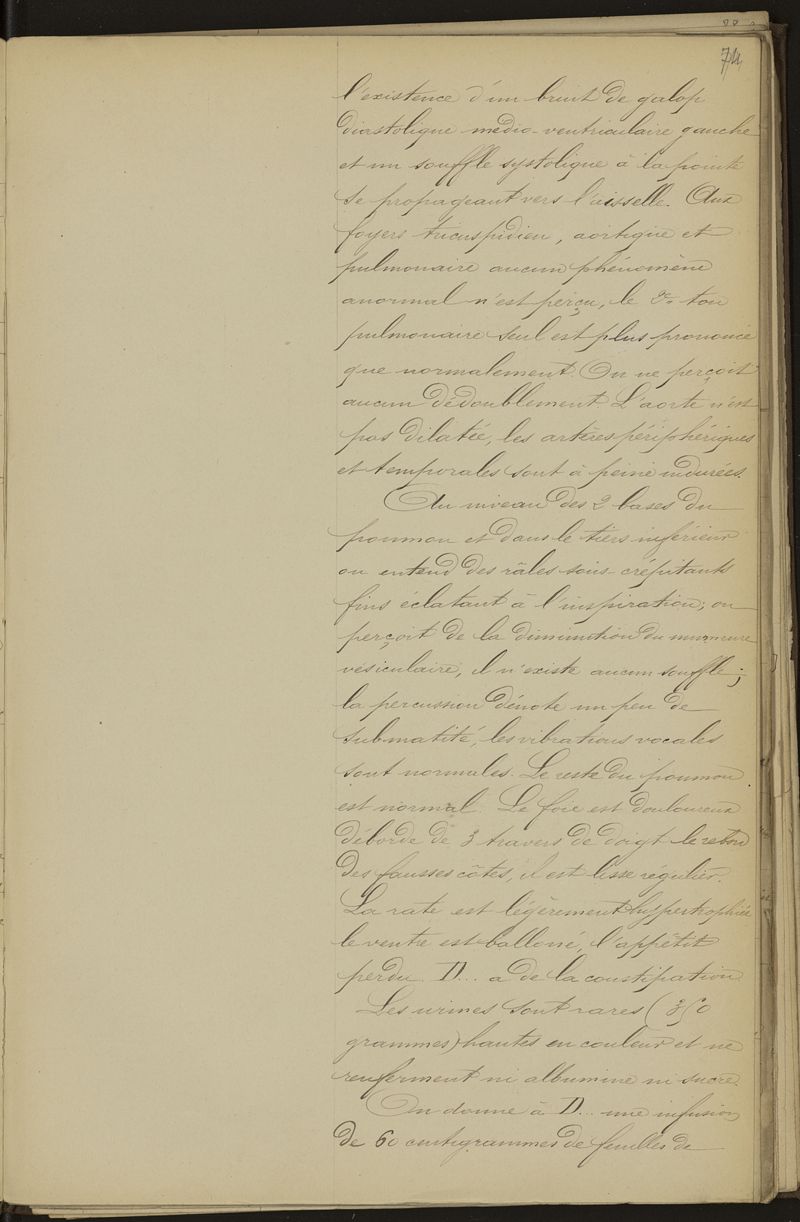 74
l'existence d'un bruit de galop
diastolique médio-ventriculaire gauche
et un souffle systolique à la pointe
se propageant vers l'aisselle. Aux
foyers tricuspidien, aortique et
pulmonaire aucun phénomène
anormal n'est perçu, le 2e ton
pulmonaire seul est plus prononcé
que normalement. On ne perçoit
aucun dédoublement. L'aorte n'est
pas dilatée, les artères périphériques
et temporales sont à peine indurées.
Au niveau des 2 bases du
poumon et dans le tiers inférieur
on entend des râles sous-crépitants
fins éclatant à l'inspiration; on
perçoit de la diminution du murmure
vésiculaire, il n'existe aucun souffle;
la percussion dénote un peu de
submatité, les vibrations vocales
sont normales. Le reste du poumon
est normal. Le foie est douloureux
déborde de 3 travers de doigt le rebord
des fausses côtes, il est lisse régulier.
La rate est légèrement hypertrophiée
le ventre est ballonné, l'appétit
perdu. D... a de la constipation.
Les urines sont rares (350
grammes) hautes en couleur et ne
renferment ni albumine ni sucre.
On donne à D... une infusion
de 60 centigrammes de feuilles de